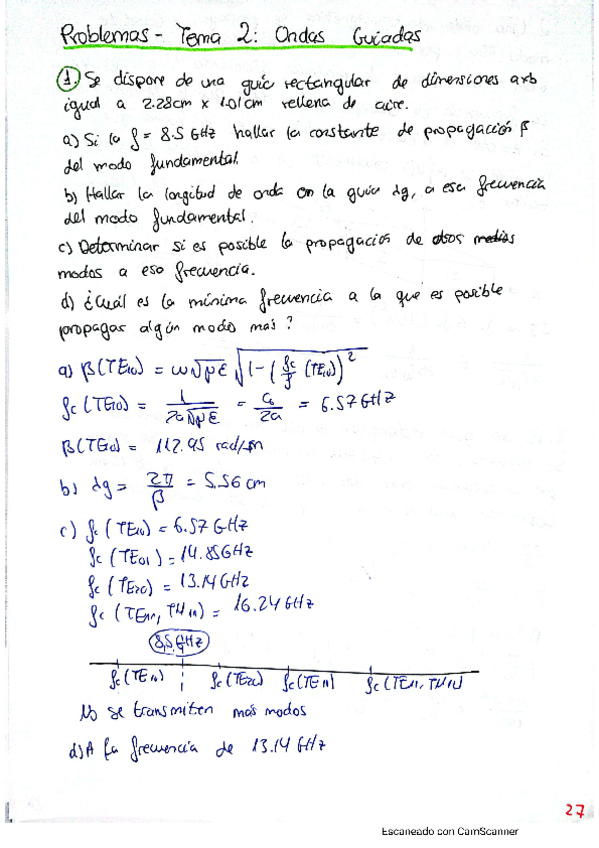 Problemas - Tema 2: Ondas Guiadas
① Se dispone de una guía rectangular de dimensiones axb
igual a 2.28cm x 1.01cm rellena de aire.
a) Si la f = 8.5 GHz hallar la constante de propagación β
del modo fundamental.
b) Hallar la longitud de onda en la guía λg, a esa frecuencia
del modo fundamental.
c) Determinar si es posible la propagación de otros medios
modos a esa frecuencia.
d) ¿Cuál es la mínima frecuencia a la que es posible
propagar algún modo más?
a) β(TE10) = ω√με √1-(fc/f (TE10))²
fc (TE10) = 1/2a√με = C0/2a = 6.57 GHz
β(TE10) = 112.95 rad/m
b) λg = 2π/β = 5.56 cm
c) fc (TE10) = 6.57 GHz
fc (TE01) = 14.85 GHz
fc (TE20) = 13.14 GHz
fc (TE11, TM11) = 16.24 GHz
8.5 GHz
fc(TE10) fc(TE20) fc(TE11) fc(TE11, TM11)
No se transmiten más modos
d) A la frecuencia de 13.14 GHz
27
Escaneado con CamScanner